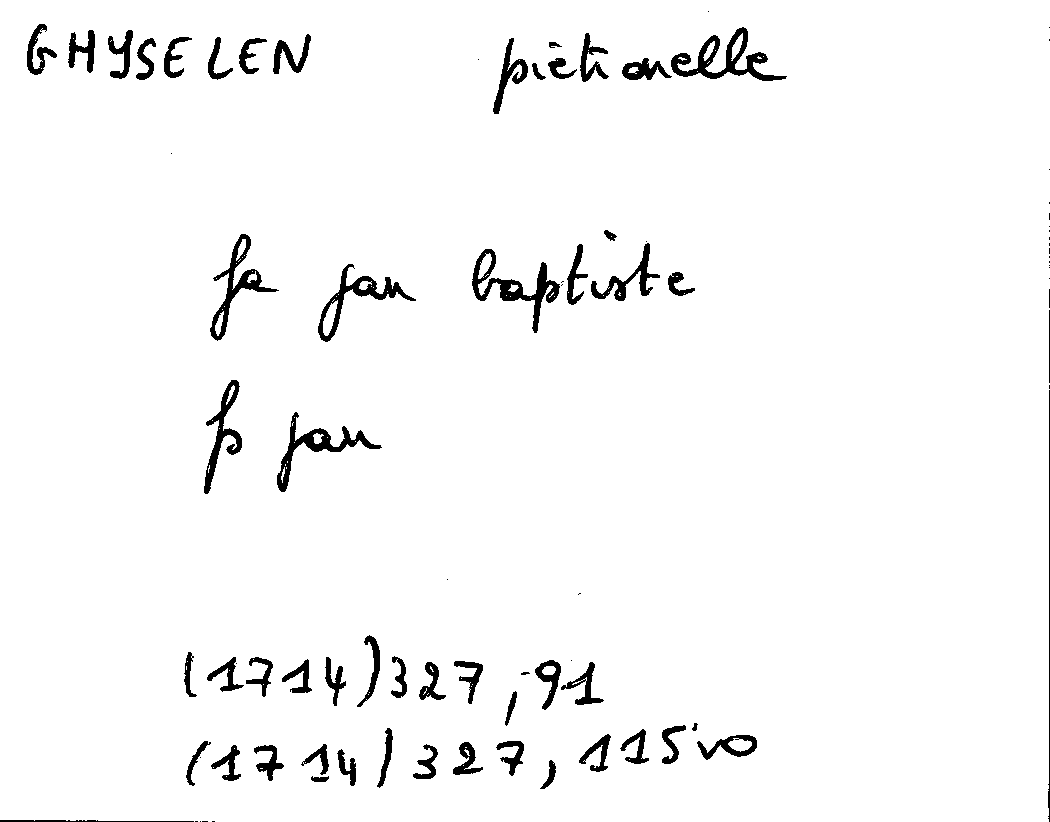 GHYSELEN piètronelle
fa jan baptiste
fs jan
(1714) 327, 91
(1714) 327, 115 vo